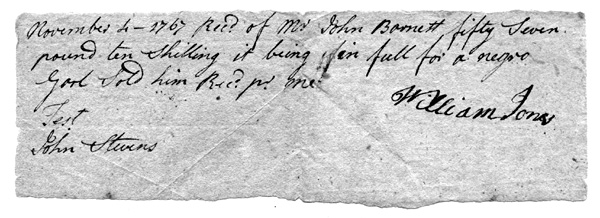 November 4 - 1767 Recd of Mr John Barnett fifty Seven
pound ten Shilling it being in full for a negro
Garl Sold him Recd pr me
William Jones
Test
John Stevens